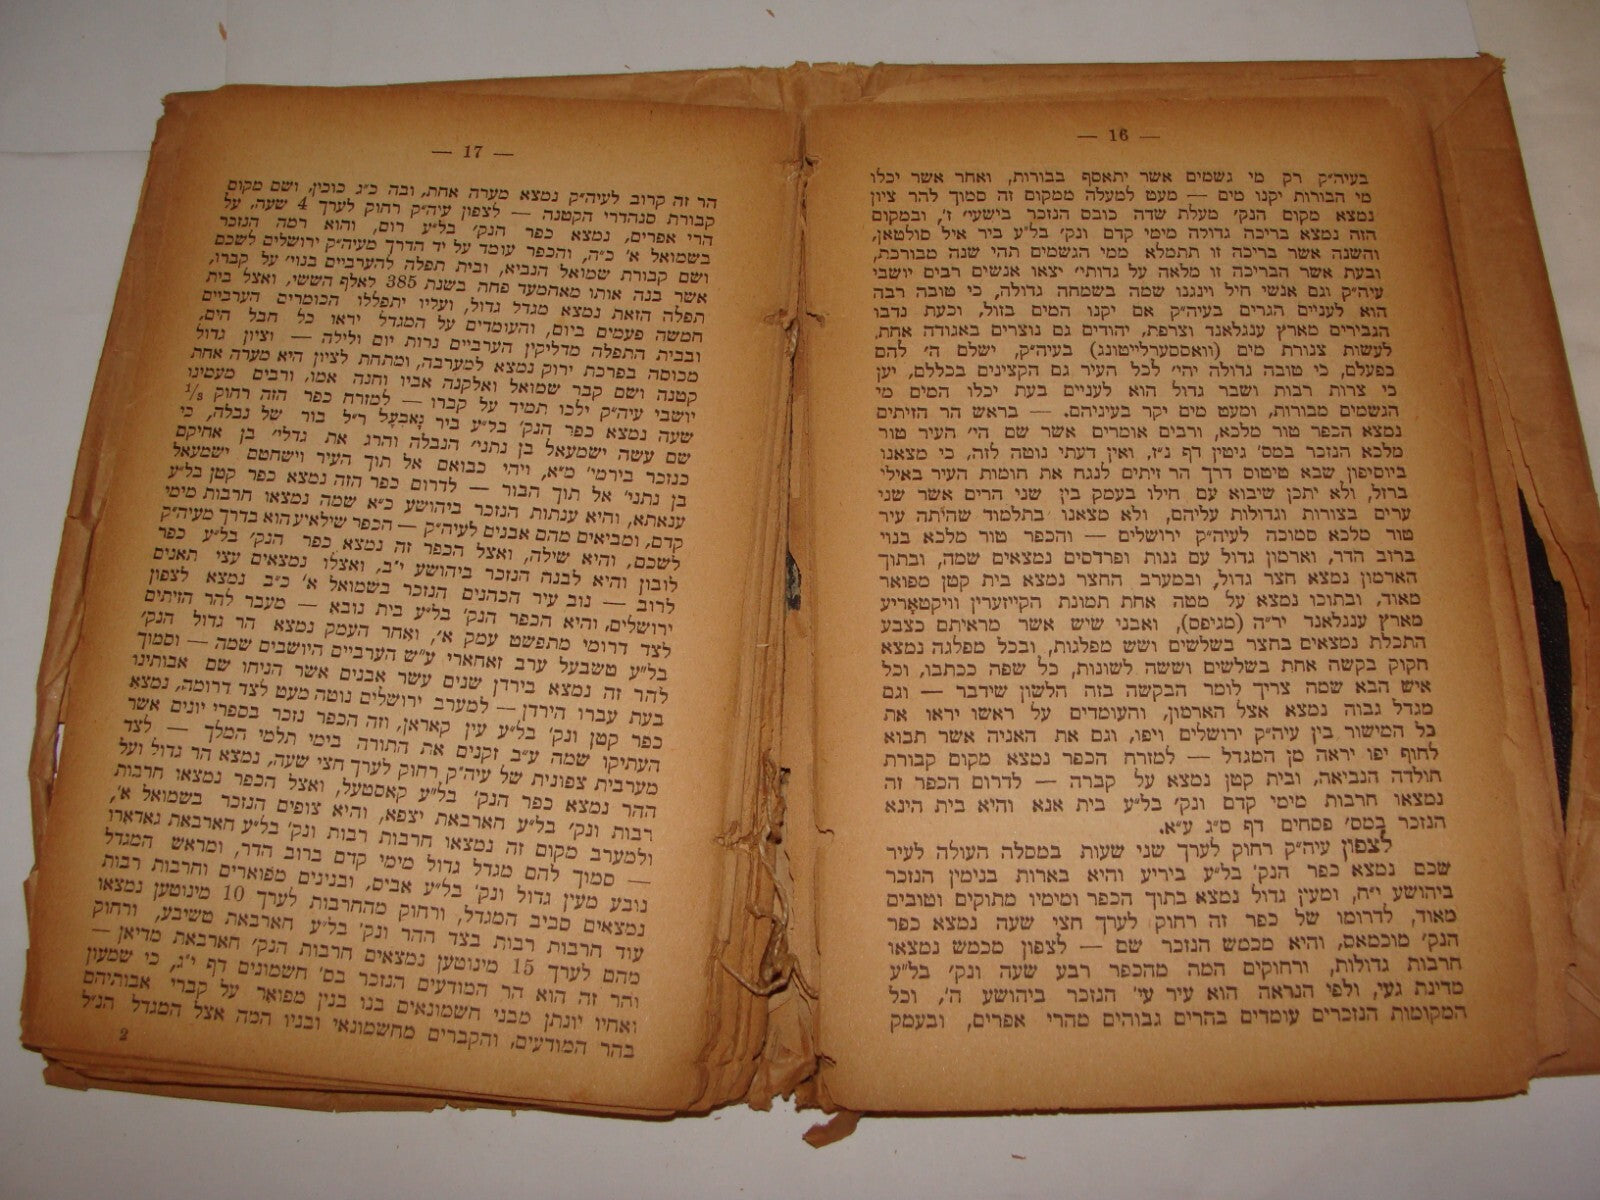 — 16 —
בעיה״ק רק מי גשמים אשר יתאסף בבורות, ואחר אשר יכלו
מי הבורות יקנו מים — מעט למעלה ממקום זה סמוך להר ציון
נמצא מקום הנק׳ מעלת שדה כובס הנזכר בישעי׳ ז׳, ובמקום
הזה נמצא בריכה גדולה מימי קדם ונק׳ בל״ע ביר איל סולטאן,
והשנה אשר בריכה זו תתמלא ממי הגשמים תהי שנה מבורכת,
ובעת אשר הבריכה זו מלאה על גדותי׳ יצאו אנשים רבים יושבי
עיה״ק וגם אנשי חיל וינגנו שמה בשמחה גדולה, כי טובה רבה
הוא לעניים הגרים בעיה״ק אם יקנו המים בזול, וכעת נדבו
הגבירים מארץ ענגלאנד וצרפת, יהודים גם נוצרים באגודה אחת
לעשות צנורת מים (וואססערלייטונג) בעיה״ק, ישלם ה׳ להם
כפעלם, כי טובה גדולה יהי׳ לכל העיר גם הקצינים בכללם, יען
כי צרות רבות ושבר גדול הוא לעניים בעת יכלו המים מי
הגשמים מבורות, ומעט מים יקר בעיניהם. — בראש הר הזיתים
נמצא הכפר טור מלכא, ורבים אומרים אשר שם הי׳ העיר טור
מלכא הנזכר במס׳ גיטין דף נ״ז, ואין דעתי נוטה לזה, כי מצאנו
ביוסיפון שבא טיטוס דרך הר זיתים לנגח את חומות העיר באילי
ברזל, ולא יתכן שיבוא עם חילו בעמק בין שני הרים אשר שני
ערים בצורות וגדולות עליהם, ולא מצאנו בתלמוד שהיתה עיר
טור מלכא סמוכה לעיה״ק ירושלים — והכפר טור מלכא בנוי
ברוב הדר, וארמון גדול עם גנות ופרדסים נמצאים שמה, ובתוך
הארמון נמצא חצר גדול, ובמערב החצר נמצא בית קטן מפואר
מאוד, ובתוכו נמצא על מטה אחת תמונת הקייזערין וויקטאריע
מארץ ענגלאנד יר״ה (מגיפס), ואבני שיש אשר מראיתם כצבע
התכלת נמצאים בחצר בשלשים ושש מפלגות, ובכל מפלגה נמצא
חקוק בקשה אחת בשלשים וששה לשונות, כל שפה ככתבו, וכל
איש הבא שמה צריך לומר הבקשה בזה הלשון שידבר — וגם
מגדל גבוה נמצא אצל הארמון, והעומדים על ראשו יראו את
כל המישור בין עיה״ק ירושלים ויפו, וגם את האניה אשר תבוא
לחוף יפו יראה מן המגדל — למזרח הכפר נמצא מקום קבורת
חולדה הנביאה, ובית קטן נמצא על קברה — לדרום הכפר זה
נמצאו חרבות מימי קדם ונק׳ בל״ע בית אנא והיא בית הינא
הנזכר במס׳ פסחים דף ס״ג ע״א.
לצפון עיה״ק רחוק לערך שני שעות במסלה העולה לעיר
שכם נמצא כפר הנק׳ בל״ע ביריע והיא בארות בנימין הנזכר
ביהושע י״ח, ומעין גדול נמצא בתוך הכפר ומימיו מתוקים וטובים
מאוד, לדרומו של כפר זה רחוק לערך חצי שעה נמצא כפר
הנק׳ מוכמאס, והיא מכמש הנזכר שם — לצפון מכמש נמצאו
חרבות גדולות, ורחוקים המה מהכפר רבע שעה ונק׳ בל״ע
מדינת געי, ולפי הנראה הוא עיר עי׳ הנזכר ביהושע ה׳, וכל
המקומות הנזכרים עומדים בהרים גבוהים מהרי אפרים, ובעמק
— 17 —
הר זה קרוב לעיה״ק נמצא מערה אחת, ובה כ״ג כוכין, ושם מקום
קבורת סנהדרי הקטנה — לצפון עיה״ק רחוק לערך 4 שעה, על
הרי אפרים, נמצא כפר הנק׳ בל״ע רום, והוא רמה הנזכר
בשמואל א׳ כ״ה, והכפר עומד על יד הדרך מעיה״ק ירושלים לשכם
ושם קבורת שמואל הנביא, ובית תפלה להערביים בנוי׳ על קברו,
אשר בנה אותו מאחמעד פחה בשנת 385 לאלף הששי, ואצל בית
תפלה הזאת נמצא מגדל גדול, ועליו יתפללו הכומרים הערביים
חמשה פעמים ביום, והעומדים על המגדל יראו כל חבל הים,
ובבית התפלה מדליקין הערביים נרות יום ולילה — וציון גדול
מכוסה בפרכת ירוק נמצא למערבה, ומתחת לציון היא מערה אחת
קטנה ושם קבר שמואל ואלקנה אביו וחנה אמו, ורבים מעמינו
יושבי עיה״ק ילכו תמיד על קברו — למזרח כפר הזה רחוק 1/3
שעה נמצא כפר הנק׳ בל״ע ביר נאבעל ר״ל בור של נבלה, כי
שם עשה ישמעאל בן נתני׳ הנבלה והרג את גדלי׳ בן אחיקם
כנזכר בירמי׳ מ״א, ויהי כבואם אל תוך העיר וישחטם ישמעאל
בן נתני׳ אל תוך הבור — לדרום כפר הזה נמצא כפר קטן בל״ע
ענאתא, והיא ענתות הנזכר ביהושע כ״א שמה נמצאו חרבות מימי
קדם, ומביאים מהם אבנים לעיה״ק — הכפר שילאיע הוא בדרך מעיה״ק
לשכם, והיא שילה, ואצל הכפר זה נמצא כפר הנק׳ בל״ע כפר
לובון והיא לבנה הנזכר ביהושע י״ב, ואצלו נמצאים עצי תאנים
לרוב — נוב עיר הכהנים הנזכר בשמואל א׳ כ״ב נמצא לצפון
ירושלים, והיא הכפר הנק׳ בל״ע בית נובא — מעבר להר הזיתים
לצד דרומי מתפשט עמק א׳, ואחר העמק נמצא הר גדול הנק׳
בל״ע טשבעל ערב זאחארי ע״ש הערביים היושבים שמה — וסמוך
להר זה נמצא בירדן שנים עשר אבנים אשר הניחו שם אבותינו
בעת עברו הירדן — למערב ירושלים נוטה מעט לצד דרומה, נמצא
כפר קטן ונק׳ בל״ע עין קאראן, וזה הכפר נזכר בספרי יונים אשר
העתיקו שמה ע״ב זקנים את התורה בימי תלמי המלך — לצד
מערבית צפונית של עיה״ק רחוק לערך חצי שעה, נמצא הר גדול ועל
ההר נמצא כפר הנק׳ בל״ע קאסטעל, ואצל הכפר נמצאו חרבות
רבות ונק׳ בל״ע חארבאת יצפא, והיא צופים הנזכר בשמואל א׳,
ולמערב מקום זה נמצאו חרבות רבות ונק׳ בל״ע חארבאת גאדארו
— סמוך להם מגדל גדול מימי קדם ברוב הדר, ומראש המגדל
נובע מעין גדול ונק׳ בל״ע אבים, ובנינים מפוארים וחרבות רבות
נמצאים סביב המגדל, ורחוק מהחרבות לערך 10 מינוטען נמצאו
עוד חרבות רבות בצד ההר ונק׳ בל״ע חארבאת טשיבע, ורחוק
מהם לערך 15 מינוטען נמצאים חרבות הנק׳ חארבאת מדיאן —
והר זה הוא הר המודעים הנזכר בס׳ חשמונים דף י״ג, כי שמעון
ואחיו יונתן מבני חשמונאים בנו בנין מפואר על קברי אבותיהם
בהר המודעים, והקברים מחשמונאי ובניו המה אצל המגדל הנ״ל
2